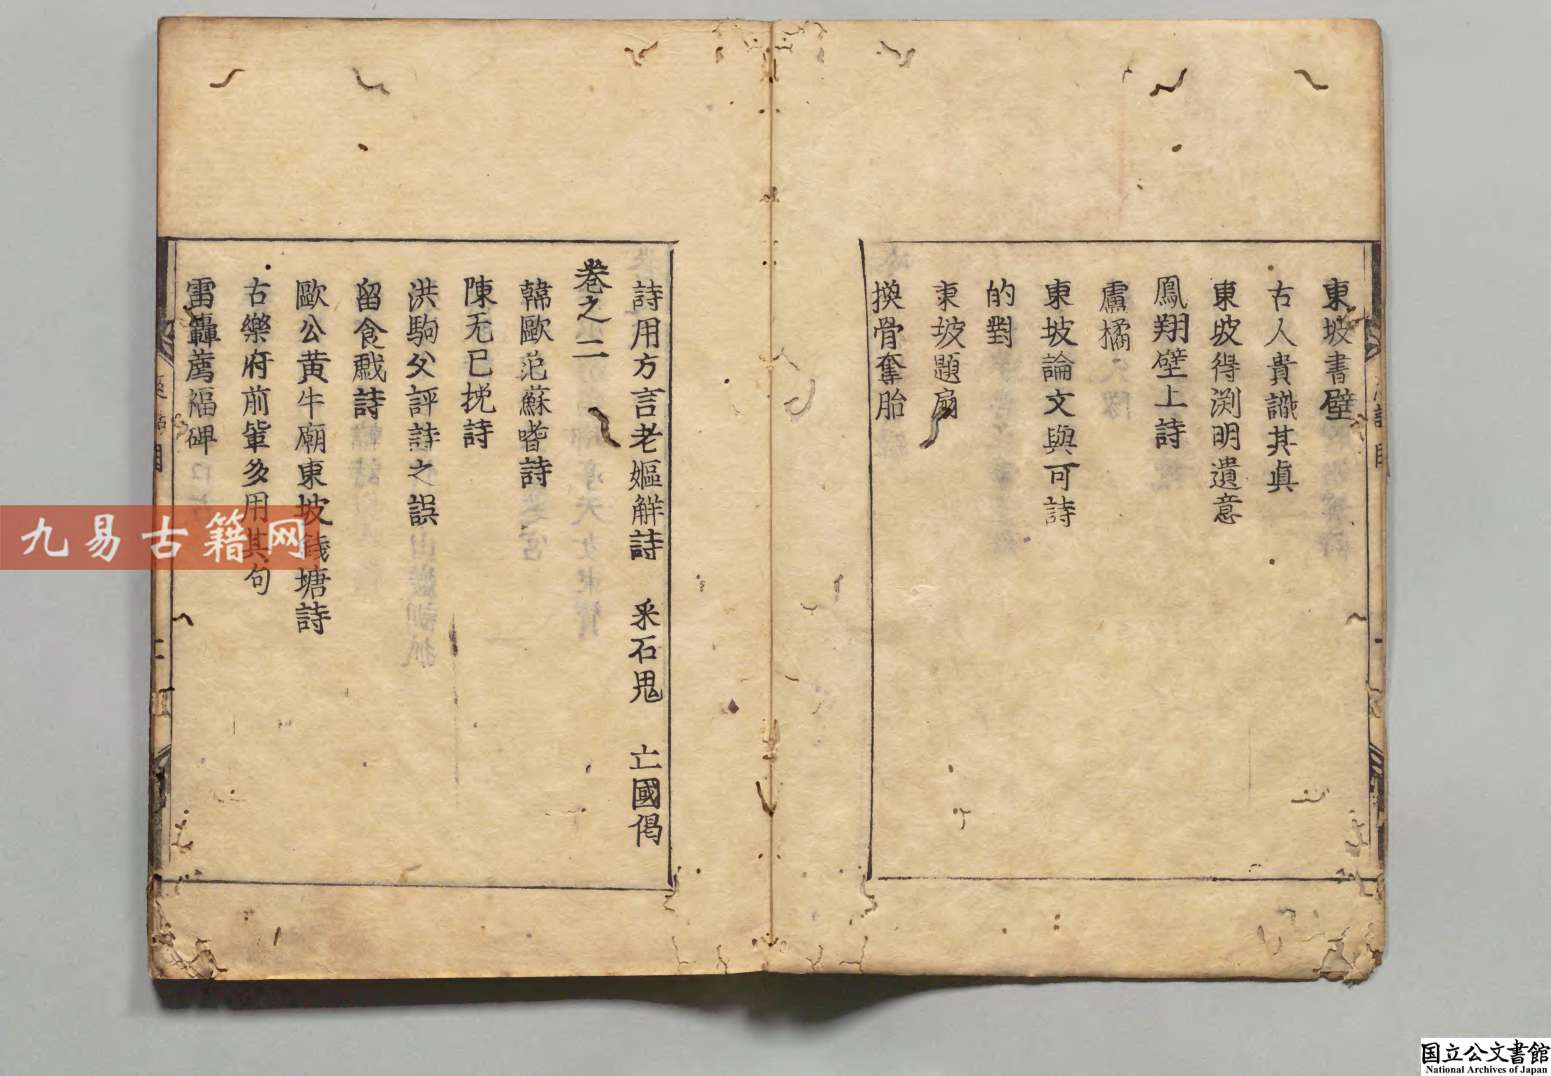 東坡書壁
古人貴識其真
東坡得渕明遺意
鳳翔壁上詩
盧橘
東坡論文與可詩
的對
東坡題扇
換骨奪胎
詩用方言老嫗解詩 采石鬼 亡國偈
卷之二
韓歐范蘇嗜詩
陳无已挽詩
洪駒父評詩之誤
留食戲詩
歐公黄牛廟東坡錢塘詩
古樂府前輩多用其句
雷轟薦福碑
九易古籍网
国立公文書館
National Archives of Japan